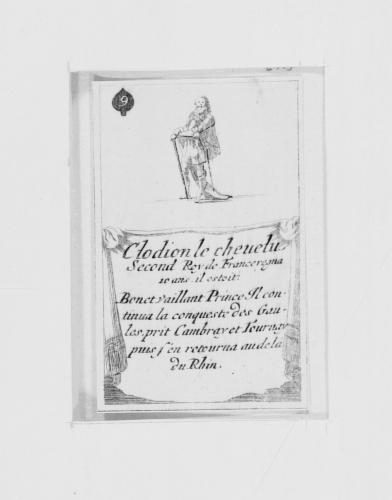 9
Clodion le chevelu.
Second Roy de France regna
10 ans. il estoit
Bon et vaillant Prince Il con-
tinua la conqueste des Gau-
les. prit Cambray et Tournay
puis s'en retourna au dela
du Rhin.